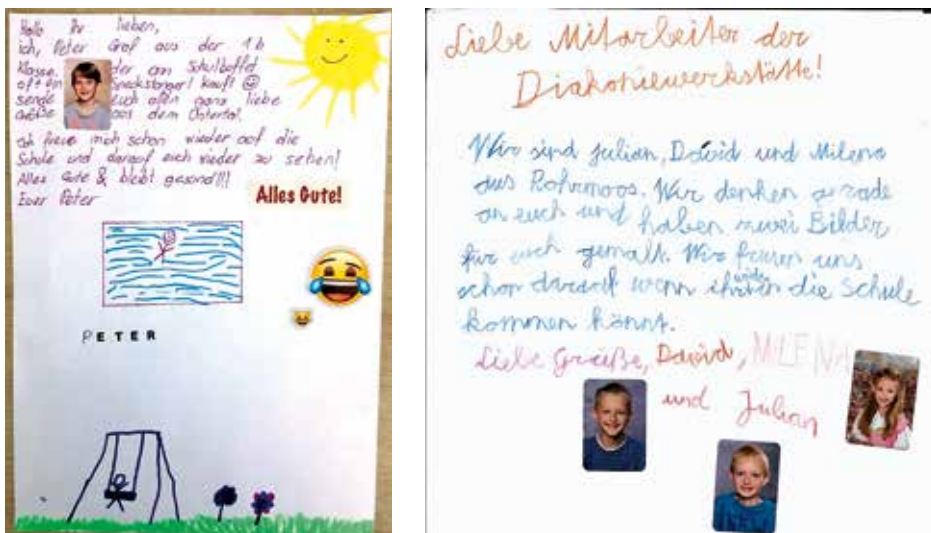 Hallo Ihr lieben,
ich, Peter Graf aus der 1b
Klasse, der am Schulbuffet
oft ein Snackstangerl kauft ☺
sende euch allen ganz liebe
Grüße aus dem Untertal.
Ich freue mich schon wieder auf die
Schule und darauf euch wieder zu sehen!
Alles Gute & bleibt gesund!!!
Euer Peter
Alles Gute!
PETER
Liebe Mitarbeiter der
Diakoniewerkstätte!
Wir sind Julian, David und Milena
aus Rohrmoos. Wir denken gerade
an euch und haben zwei Bilder
für euch gemalt. Wir freuen uns
schon darauf wenn ihr wieder in die Schule
kommen könnt.
Liebe Grüße, David, MILENA
und Julian